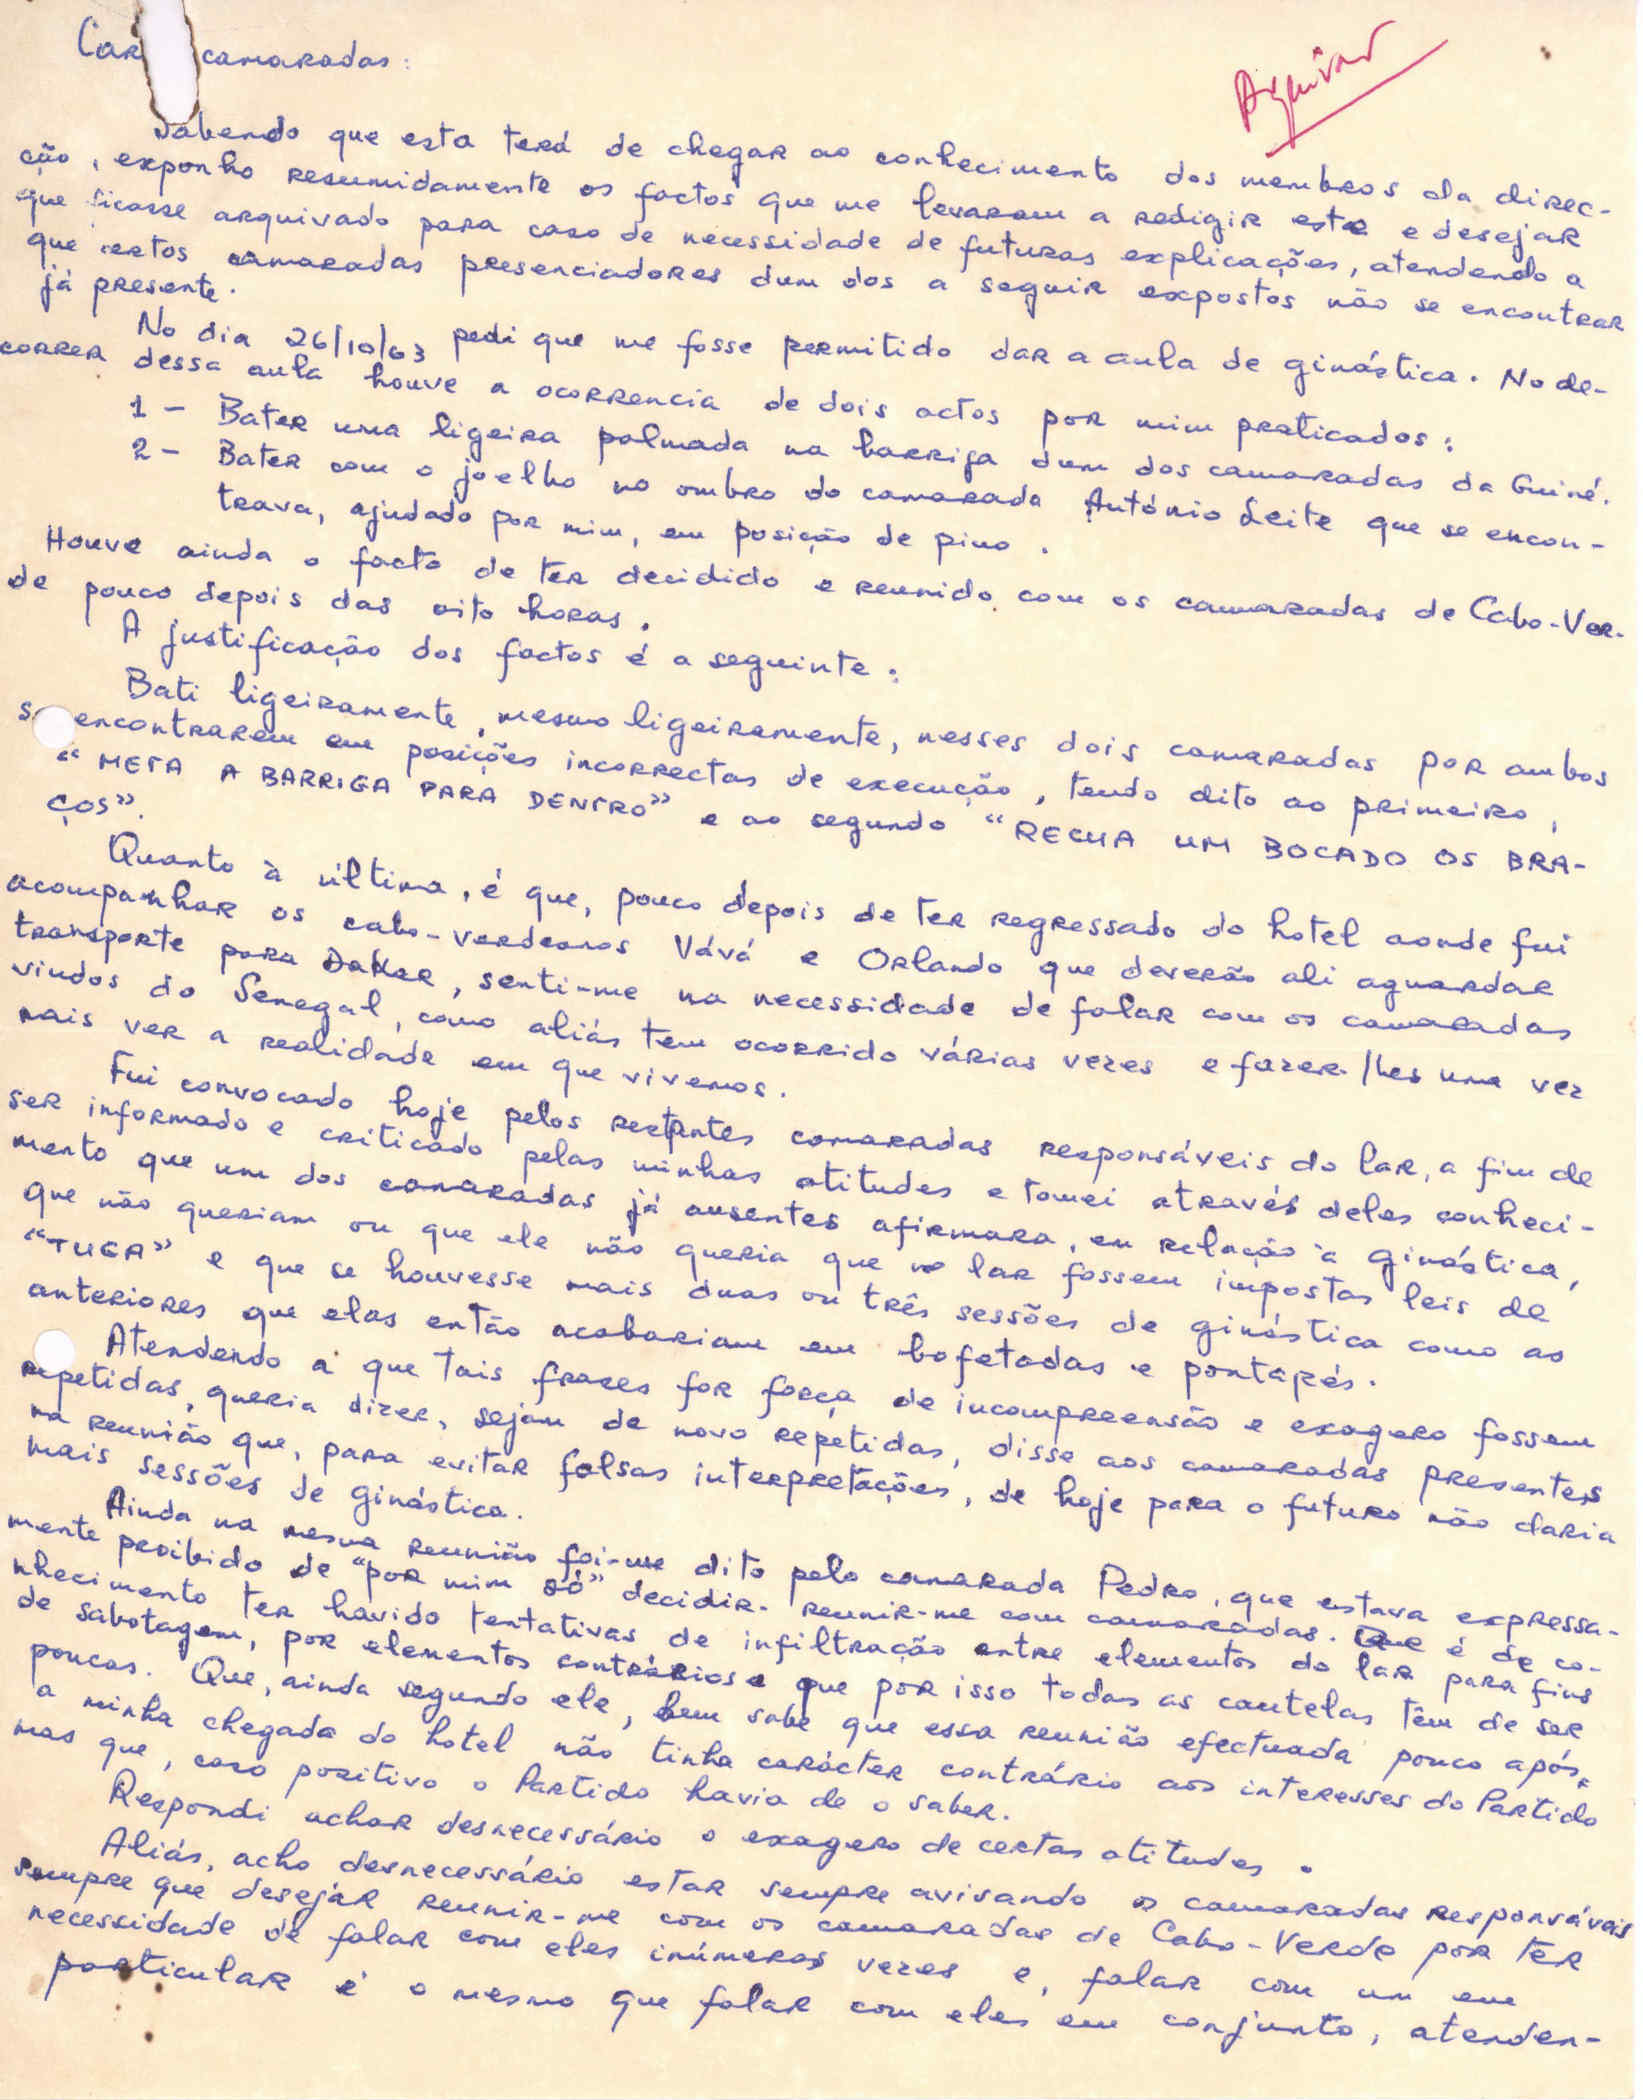 Car camaradas:
Arquivar
Sabendo que esta terá de chegar ao conhecimento dos membros da direc-
ção, exponho resumidamente os factos que me levaram a redigir esta e desejar
que ficasse arquivado para caso de necessidade de futuras explicações, atendendo a
que certos camaradas presenciadores dum dos a seguir expostos não se encontrar
já presente.
No dia 26/10/63 pedi que me fosse permitido dar a aula de ginástica. No de-
correr dessa aula houve a ocorrencia de dois actos por mim praticados:
1 - Bater uma ligeira palmada na barriga dum dos camaradas da Guiné.
2 - Bater com o joelho no ombro do camarada António Leite que se encon-
trava, ajudado por mim, em posição de pino.
Houve ainda o facto de ter decidido e reunido com os camaradas de Cabo-Ver-
de pouco depois das oito horas.
A justificação dos factos é a seguinte:
Bati ligeiramente, mesmo ligeiramente, nesses dois camaradas por ambos
s encontrarem em posições incorrectas de execução, tendo dito ao primeiro,
"META A BARRIGA PARA DENTRO" e ao segundo "RECUA UM BOCADO OS BRA-
ÇOS".
Quanto à última, é que, pouco depois de ter regressado do hotel aonde fui
acompanhar os cabo-verdeanos Vává e Orlando que deverão ali aguardar
transporte para Dakar, senti-me na necessidade de falar com os camaradas
vindos do Senegal, como aliás tem ocorrido várias vezes e fazer-lhes uma vez
mais ver a realidade em que vivemos.
Fui convocado hoje pelos restantes camaradas responsáveis do lar, a fim de
ser informado e criticado pelas minhas atitudes e tomei através deles conheci-
mento que um dos camaradas já ausentes afirmara, em relação à ginástica,
que não queriam ou que ele não queria que no lar fossem impostas leis de
"TUGA" e que se houvesse mais duas ou três sessões de ginástica como as
anteriores que elas então acabariam em bofetadas e pontapés.
Atendendo a que tais frases for força de incompreensão e exagero fossem
repetidas, queria dizer, sejam de novo repetidas, disse aos camaradas presentes
na reunião que, para evitar falsas interpretações, de hoje para o futuro não daria
mais sessões de ginástica.
Ainda na mesma reunião foi-me dito pelo camarada Pedro, que estava expressa-
mente proibido de "por mim só" decidir reunir-me com camaradas. Que é de co-
nhecimento ter havido tentativas de infiltração entre elementos do lar para fins
de sabotagem, por elementos contrários e que por isso todas as cautelas têm de ser
poucas. Que, ainda segundo ele, bem sabe que essa reunião efectuada pouco após,
a minha chegada do hotel não tinha carácter contrário aos interesses do Partido
mas que, caso positivo o Partido havia de o saber.
Respondi achar desnecessário o exagero de certas atitudes.
Aliás, acho desnecessário estar sempre avisando os camaradas responsáveis
sempre que desejar reunir-me com os camaradas de Cabo-Verde por ter
necessidade de falar com eles inúmeras vezes e, falar com um em
particular é o mesmo que falar com eles em conjunto, atenden-